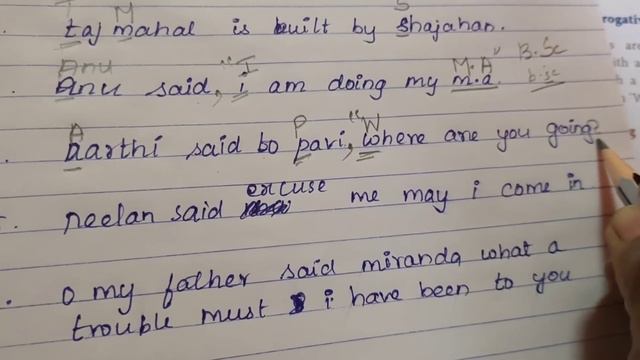 T M S
taj mahal is built by Shajahan.
Anu "I M.A" B.Sc
Anu said, i am doing my m.a. b.sc
A P "W
aarthi said to pavi, where are you going?
excuse
neelan said me may i come in
o my father said miranda what a
trouble must i have been to you
rogativ